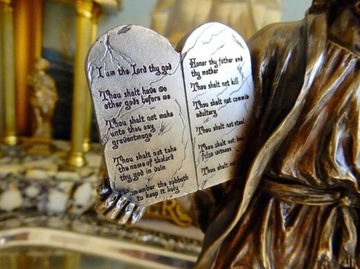 I am the Lord thy god
Thou shalt have no
other gods before me
Thou shalt not make
unto thou any
gravenimage
Thou shalt not take
the name of thelord
thy god in vain
remember the sabbath
to keep it holy
Honor thy father and
thy mother
Thou shalt not kill
Thou shalt not commit
adultery
Thou shalt not steal
Thou shalt not
witness
Thou shalt not